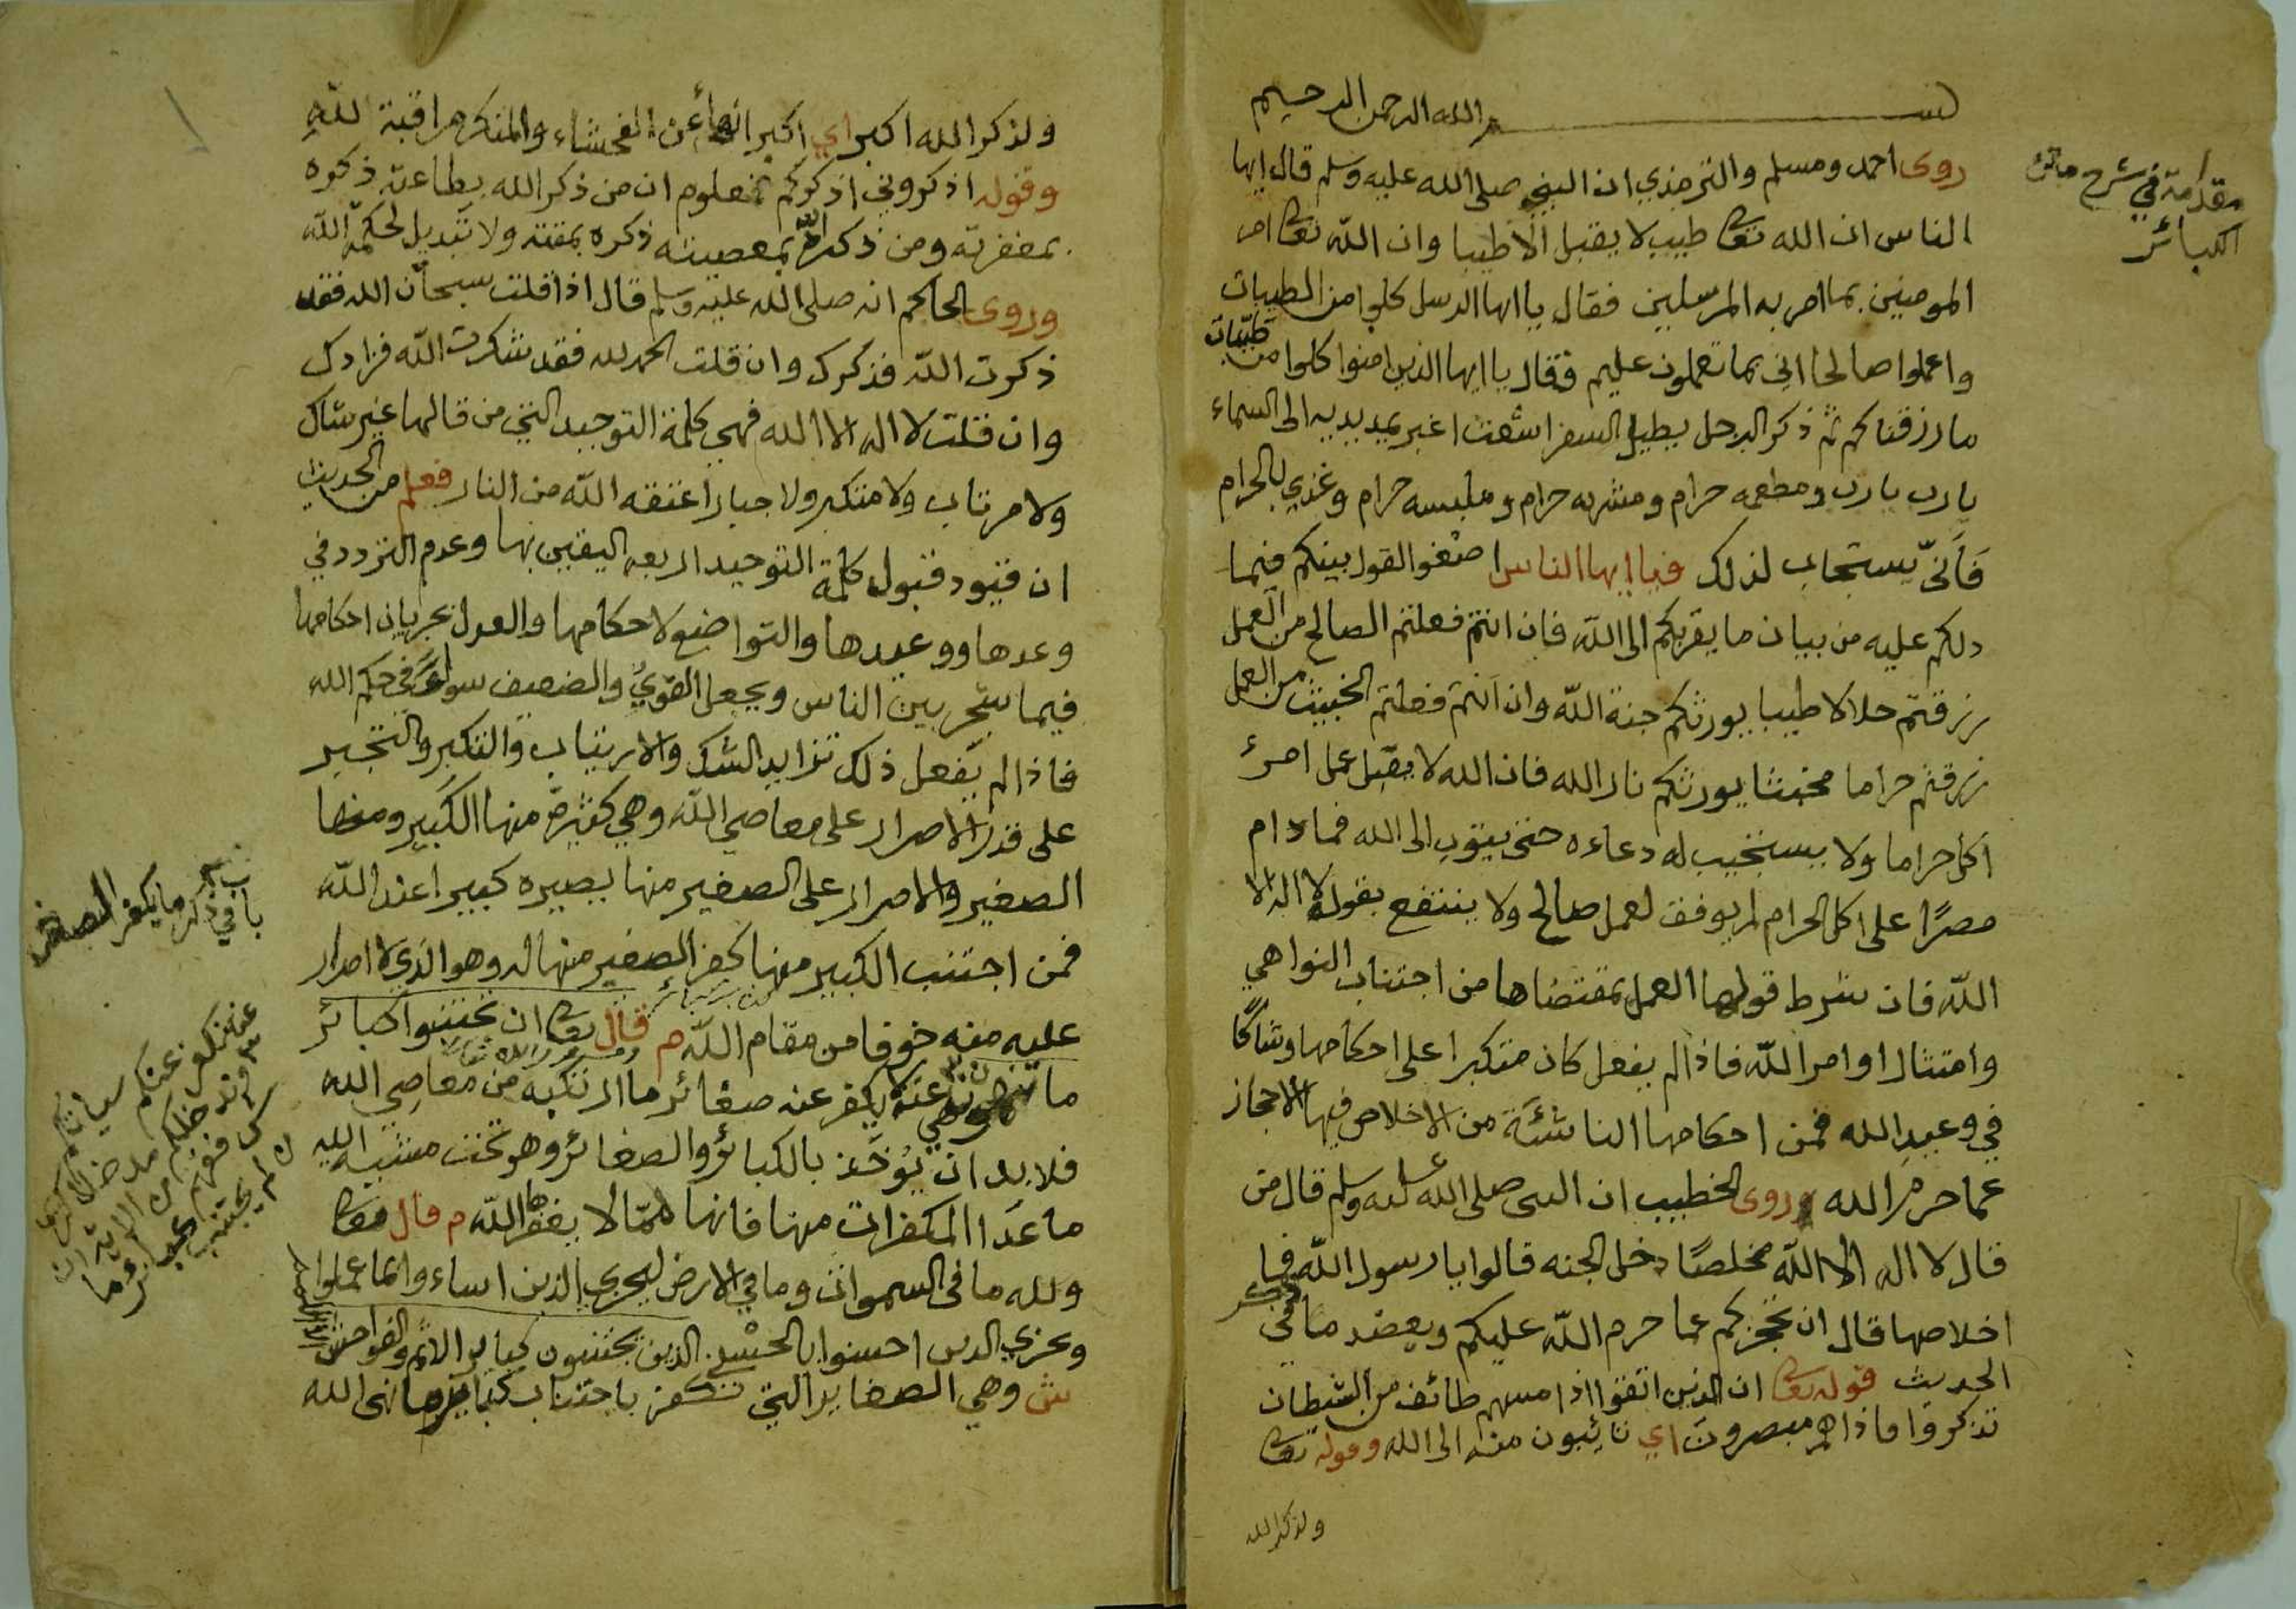 بسم الله الرحمن الرحيم
مقدمة في شرح متن
الكبائر
روى احمد ومسلم والترمذي ان النبي صلى الله عليه وسلم قال ايها
الناس ان الله تعا طيب لا يقبل الا طيبا وان الله تعا امر
المومنين بما امر به المرسلين فقال يا ايها الرسل كلوا من الطيبات
واعملوا صالحا اني بما تعملون عليم فقال يا ايها الذين امنوا كلوا من طيبات
ما رزقناكم ثم ذكر الرجل يطيل السفر اشعث اغبر يمد يديه الى السماء
يا رب يا رب ومطعمه حرام ومشربه حرام وملبسه حرام وغذي بالحرام
فأنّى يستجاب لذلك فيا ايها الناس اصغوا القول بينكم فيما
دلكم عليه من بيان ما يقربكم الى الله فان انتم فعلتم الصالح من العمل
رزقتم حلالا طيبا يورثكم جنة الله وان انتم فعلتم الخبيث من العمل
رزقتم حراما مخبثا يورثكم نار الله فان الله لا يقبل عمل امرئ
اكل حراما ولا يستجيب له دعاءه حتى يتوب الى الله فما دام
مصرًا على اكل الحرام لم يوفق لعمل صالح ولا ينتفع بقوله لا اله الا
الله فان شرط قولها العمل بمقتضاها من اجتناب النواهي
وامتثال اوامر الله فاذا لم يفعل كان متكبرا على احكامها وشاكا
في وعيد الله فمن احكامها الناشئة من الاخلاص فيها الاحجاز
عما حرم الله وروى الخطيب ان النبى صلى الله عليه وسلم قال من
قال لا اله الا الله مخلصًا دخل الجنه قالوا يا رسول الله فما
اخلاصها قال ان تحجزكم عما حرم الله عليكم ويعضد ما في
الحديث قوله تعا ان الذين اتقوا اذا مسهم طائف من الشيطان
تذكروا فاذا هم مبصرون اي تائبون منه الى الله وقوله تعا
ولذكر الله
ولذكر الله اكبر اي اكبر انهاءً عن الفحشاء والمنكر مراقبة لله
وقوله اذكروني اذكركم فمعلوم ان من ذكر الله بطاعته ذكره
بمغفرته ومن ذكر الله بمعصيته ذكره بمقته ولا تبديل لحكمة الله
وروى الحاكم انه صلى الله عليه وسلم قال اذا قلت سبحان الله فقد
ذكرت الله فذكرك وان قلت الحمد لله فقد شكرت الله فزادك
وان قلت لا اله الا الله فهي كلمة التوحيد التي من قالها غير شاك
ولا مرتاب ولا متكبر ولا جبار اعتقه الله من النار فعلم من الحديث
ان قيود قبول كلمة التوحيد اربعه اليقين بها وعدم التردد في
وعدها ووعيدها والتواضع لاحكامها والعدل بجريان احكامها
فيما شجر بين الناس ويجعل القويُّ والضعيف سواءً في حكم الله
فاذا لم يفعل ذلك تزايد الشك والارتياب والتكبر والتجبر
على قدر الاصرار على معاصي الله وهي كثيرة منها الكبير ومنها
الصغير والاصرار على الصغير منها يصيره كبيرا عند الله
فمن اجتنب الكبير منها كفر الصغير منها له وهو الذي لا اصرار
عليه منه خوفا من مقام الله م قال تعا ان تجتنبوا كبائر
ما تنهون عنه يكفر عنه صغائر ما ارتكبه من معاصي الله
فلا بد ان يُوخَذ بالكبائر والصغائر وهو تحت مشيه الله
ما عَدَا المكفرات منها فانها ممّا لا يغفرها الله م قال تعا
ولله ما فى السموات وما في الارض ليجزي الذين اساءوا بما عملوا
ويجزي الذين احسنوا بالحسنى الذين يجتنبون كبائر الاثم والفواحش
ش وهي الصغاير التي تكفر باجتناب كبائر ما نهى الله
باب في ذكر ما يكفر الصغائر
عنه نكفر عنكم سيئاتكم
وندخلكم مدخلا كريما
ش فهم من الاية ان
من لم يجتنب كبائر ما